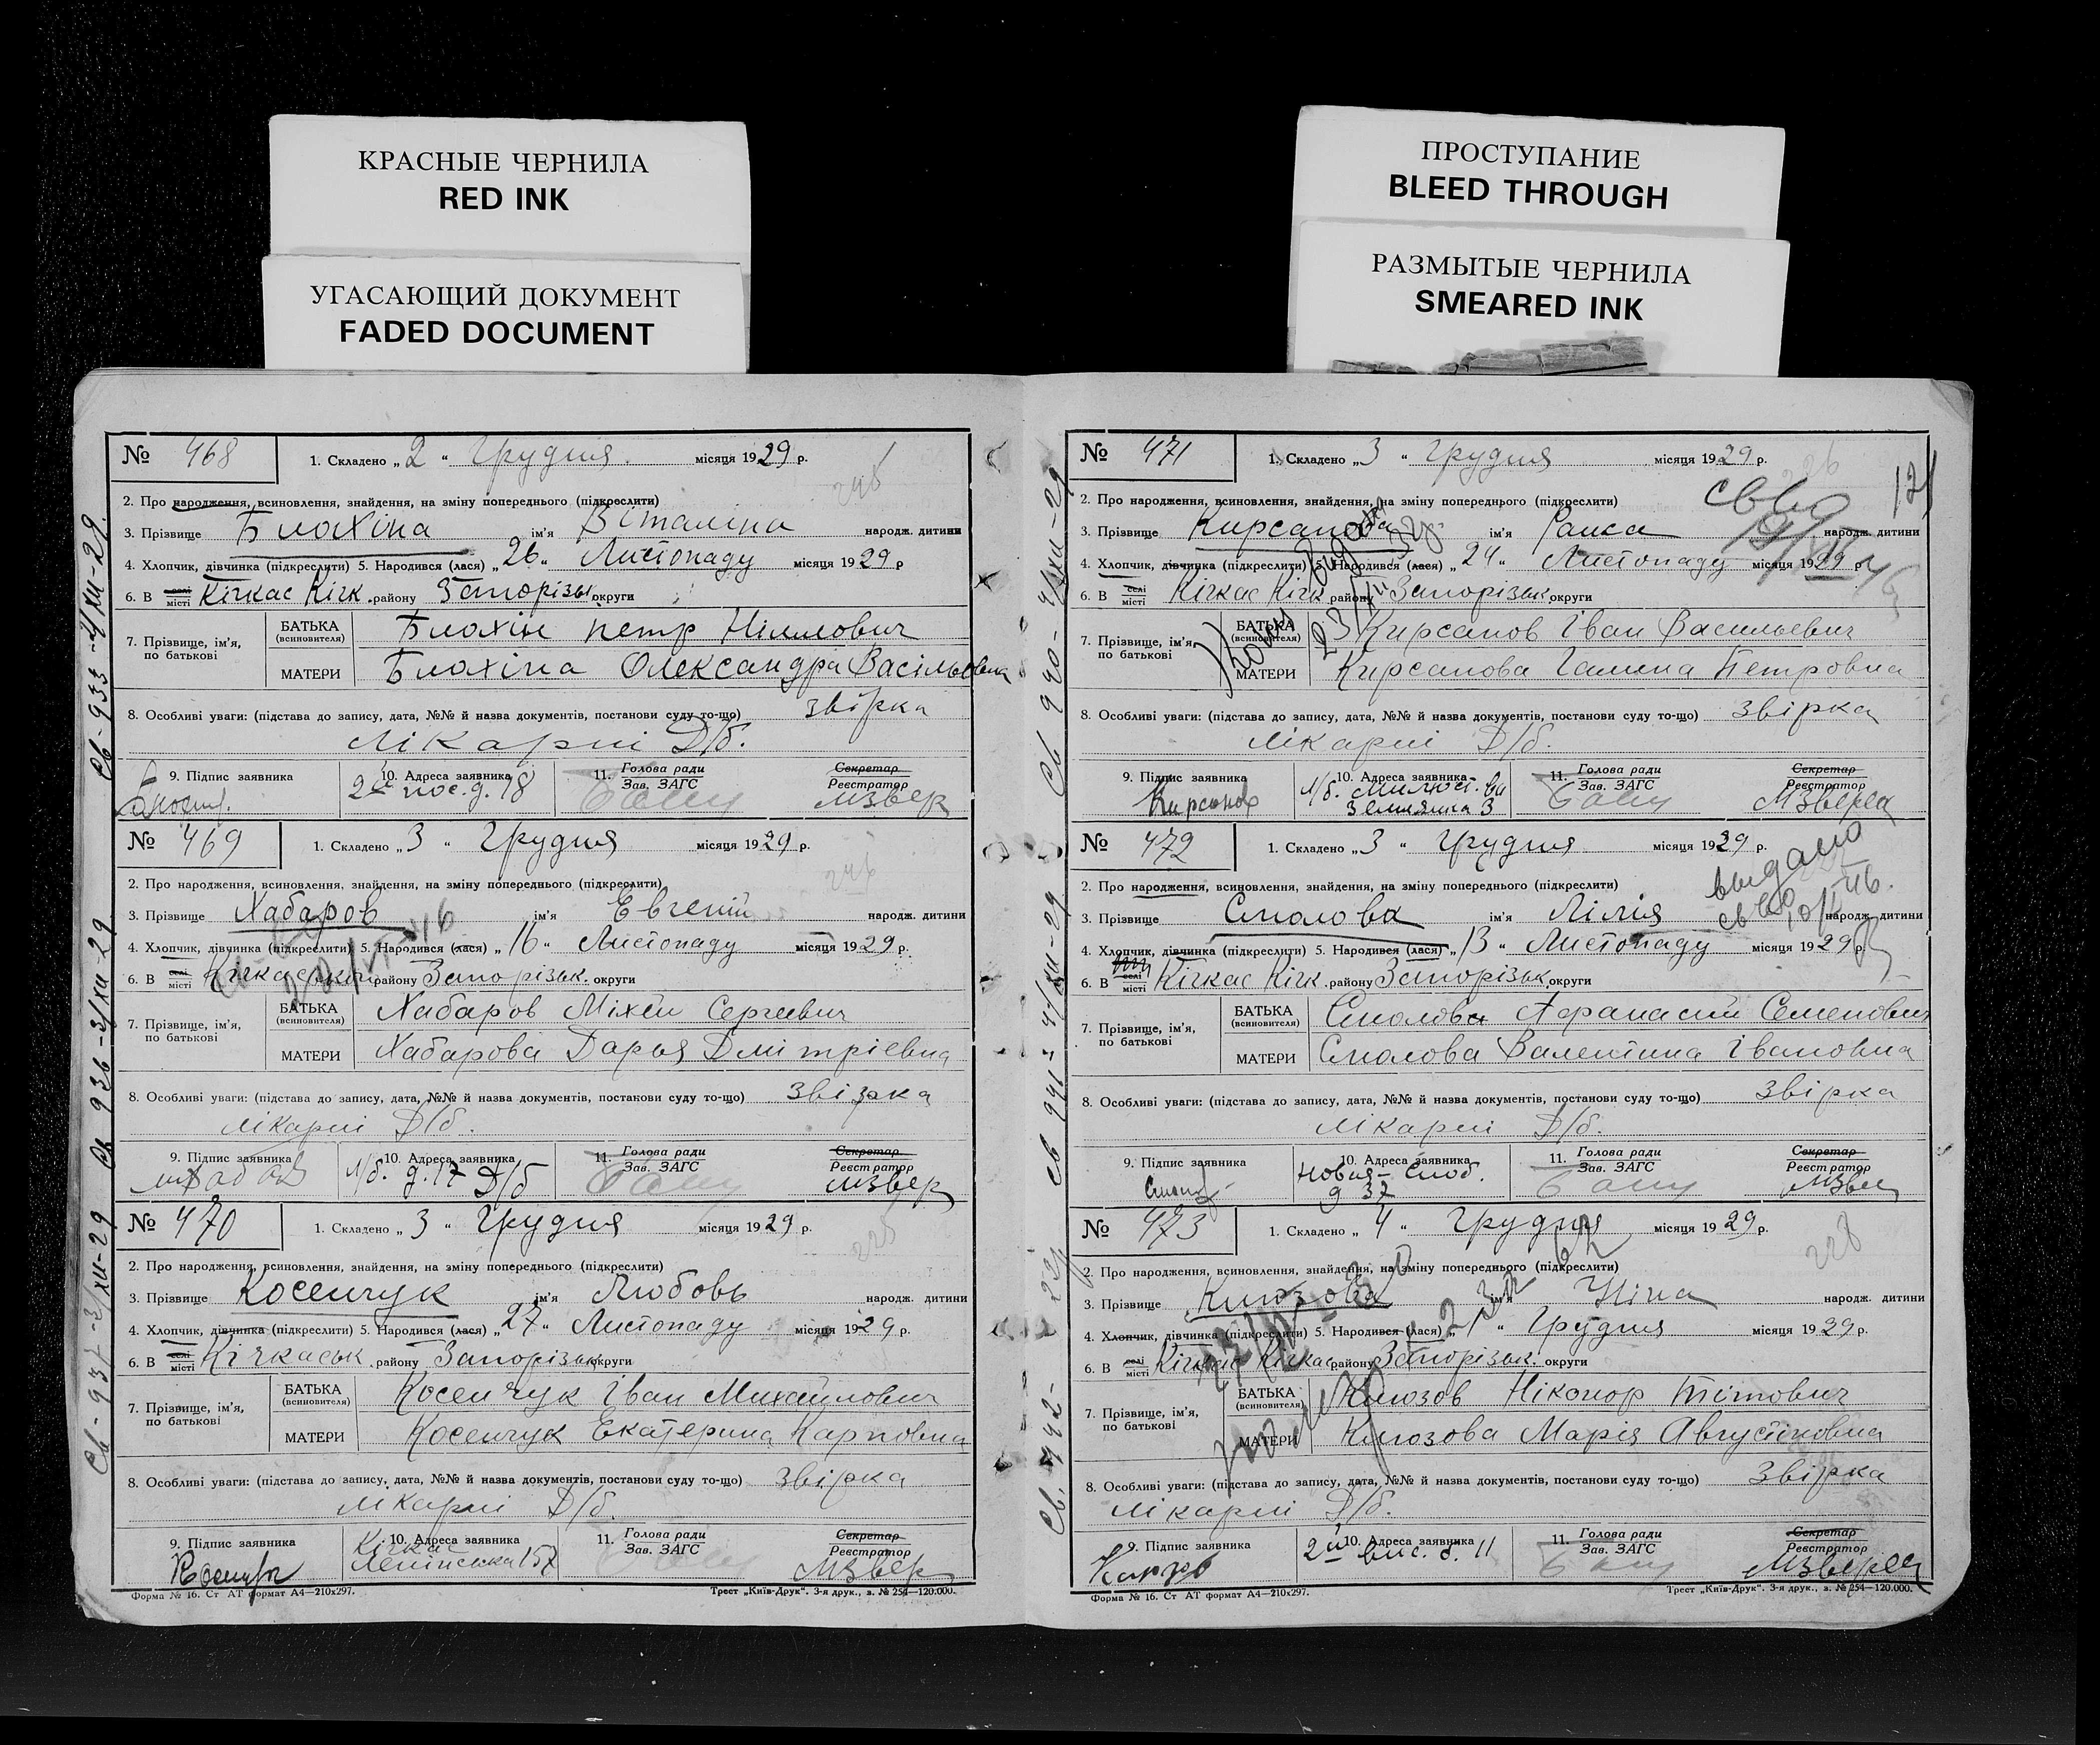 КРАСНЫЕ ЧЕРНИЛА
RED INK
УГАСАЮЩИЙ ДОКУМЕНТ
FADED DOCUMENT
ПРОСТУПАНИЕ
BLEED THROUGH
РАЗМЫТЫЕ ЧЕРНИЛА
SMEARED INK
№ 468 1. Складено „2“ Грудня місяця 1929 р.
2. Про народження, всиновлення, знайдення, на зміну попереднього (підкреслити)
3. Прізвище Блохіна ім'я Віталіна народж. дитини
4. Хлопчик, дівчинка (підкреслити) 5. Народився (лася) „26“ Листопаду місяця 1929 р
6. В селі місті Кічкас Кічк. району Запорізьк округи
7. Прізвище, ім'я, по батькові
БАТЬКА (всиновителя) Блохін Петр Нілович
МАТЕРИ Блохіна Олександра Васільевна
8. Особливі уваги: (підстава до запису, дата, №№ й назва документів, постанови суду то-що) звірка
лікарні Д/б.
9. Підпис заявника 10. Адреса заявника 11. Голова ради Зав. ЗАГС Секретар Реєстратор
2й пос. д. 18
№ 469 1. Складено „3“ Грудня місяця 1929 р.
2. Про народження, всиновлення, знайдення, на зміну попереднього (підкреслити)
3. Прізвище Хабаров ім'я Евгеній народж. дитини
4. Хлопчик, дівчинка (підкреслити) 5. Народився (лася) „16“ Листопаду місяця 1929 р.
6. В селі місті Кічкас району Запорізьк. округи
7. Прізвище, ім'я, по батькові
БАТЬКА (всиновителя) Хабаров Міхеій Сергеевич
МАТЕРИ Хабарова Дарья Дмітріевна
8. Особливі уваги: (підстава до запису, дата, №№ й назва документів, постанови суду то-що) звірка
лікарні Д/б.
9. Підпис заявника 10. Адреса заявника 11. Голова ради Зав. ЗАГС Секретар Реєстратор
л/б. д. 17 Д/б
№ 470 1. Складено „3“ Грудня місяця 1929 р.
2. Про народження, всиновлення, знайдення, на зміну попереднього (підкреслити)
3. Прізвище Косенчук ім'я Любовь народж. дитини
4. Хлопчик, дівчинка (підкреслити) 5. Народився (лася) „27“ Листопаду місяця 1929 р.
6. В селі місті Кічкаськ. району Запорізьк округи
7. Прізвище, ім'я, по батькові
БАТЬКА (всиновителя) Косенчук Іван Михайлович
МАТЕРИ Косенчук Екатерина Карповна
8. Особливі уваги: (підстава до запису, дата, №№ й назва документів, постанови суду то-що) звірка
лікарні Д/б.
9. Підпис заявника 10. Адреса заявника 11. Голова ради Зав. ЗАГС Секретар Реєстратор
Кічкас Ленінська 157
Форма № 16. Ст АТ формат А4—210х297. Трест „Київ-Друк“. 3-я друк., з. № 254—120.000.
№ 471 1. Складено „3“ Грудня місяця 1929 р.
121
2. Про народження, всиновлення, знайдення, на зміну попереднього (підкреслити)
3. Прізвище Кирсанова ім'я Раиса народж. дитини
4. Хлопчик, дівчинка (підкреслити) 5. Народився (лася) „24“ Листопаду місяця 1929 р
6. В селі місті Кічкас Кічк району Запорізьк. округи
7. Прізвище, ім'я, по батькові
БАТЬКА (всиновителя) Кирсанов Іван Васильевич
МАТЕРИ Кирсанова Галина Петровна
8. Особливі уваги: (підстава до запису, дата, №№ й назва документів, постанови суду то-що) звірка
лікарні Д/б.
9. Підпис заявника 10. Адреса заявника 11. Голова ради Зав. ЗАГС Секретар Реєстратор
Кирсанов Землянка 3
№ 472 1. Складено „3“ Грудня місяця 1929 р.
выдано
2. Про народження, всиновлення, знайдення, на зміну попереднього (підкреслити)
3. Прізвище Смолова ім'я Лілія народж. дитини
4. Хлопчик, дівчинка (підкреслити) 5. Народився (лася) „13“ Листопаду місяця 1929 р.
6. В селі місті Кічкас Кічк. району Запорізьк. округи
7. Прізвище, ім'я, по батькові
БАТЬКА (всиновителя) Смолова Афанасий Семенович
МАТЕРИ Смолова Валентина Івановна
8. Особливі уваги: (підстава до запису, дата, №№ й назва документів, постанови суду то-що) звірка
лікарні Д/б.
9. Підпис заявника 10. Адреса заявника 11. Голова ради Зав. ЗАГС Секретар Реєстратор
Новая-Слоб. д 37
№ 473 1. Складено „4“ Грудня місяця 1929 р.
228
2. Про народження, всиновлення, знайдення, на зміну попереднього (підкреслити)
3. Прізвище Князова ім'я Ніна народж. дитини
4. Хлопчик, дівчинка (підкреслити) 5. Народився (лася) „1“ Грудня місяця 1929 р.
6. В селі місті Кічкас Кічкас району Запорізьк. округи
7. Прізвище, ім'я, по батькові
БАТЬКА (всиновителя) Князов Ніконор Тітович
МАТЕРИ Князова Марія Августіновна
8. Особливі уваги: (підстава до запису, дата, №№ й назва документів, постанови суду то-що) звірка
лікарні Д/б.
9. Підпис заявника 10. Адреса заявника 11. Голова ради Зав. ЗАГС Секретар Реєстратор
Форма № 16. Ст АТ формат А4—210х297. Трест „Київ-Друк“. 3-я друк., з. № 254—120.000.